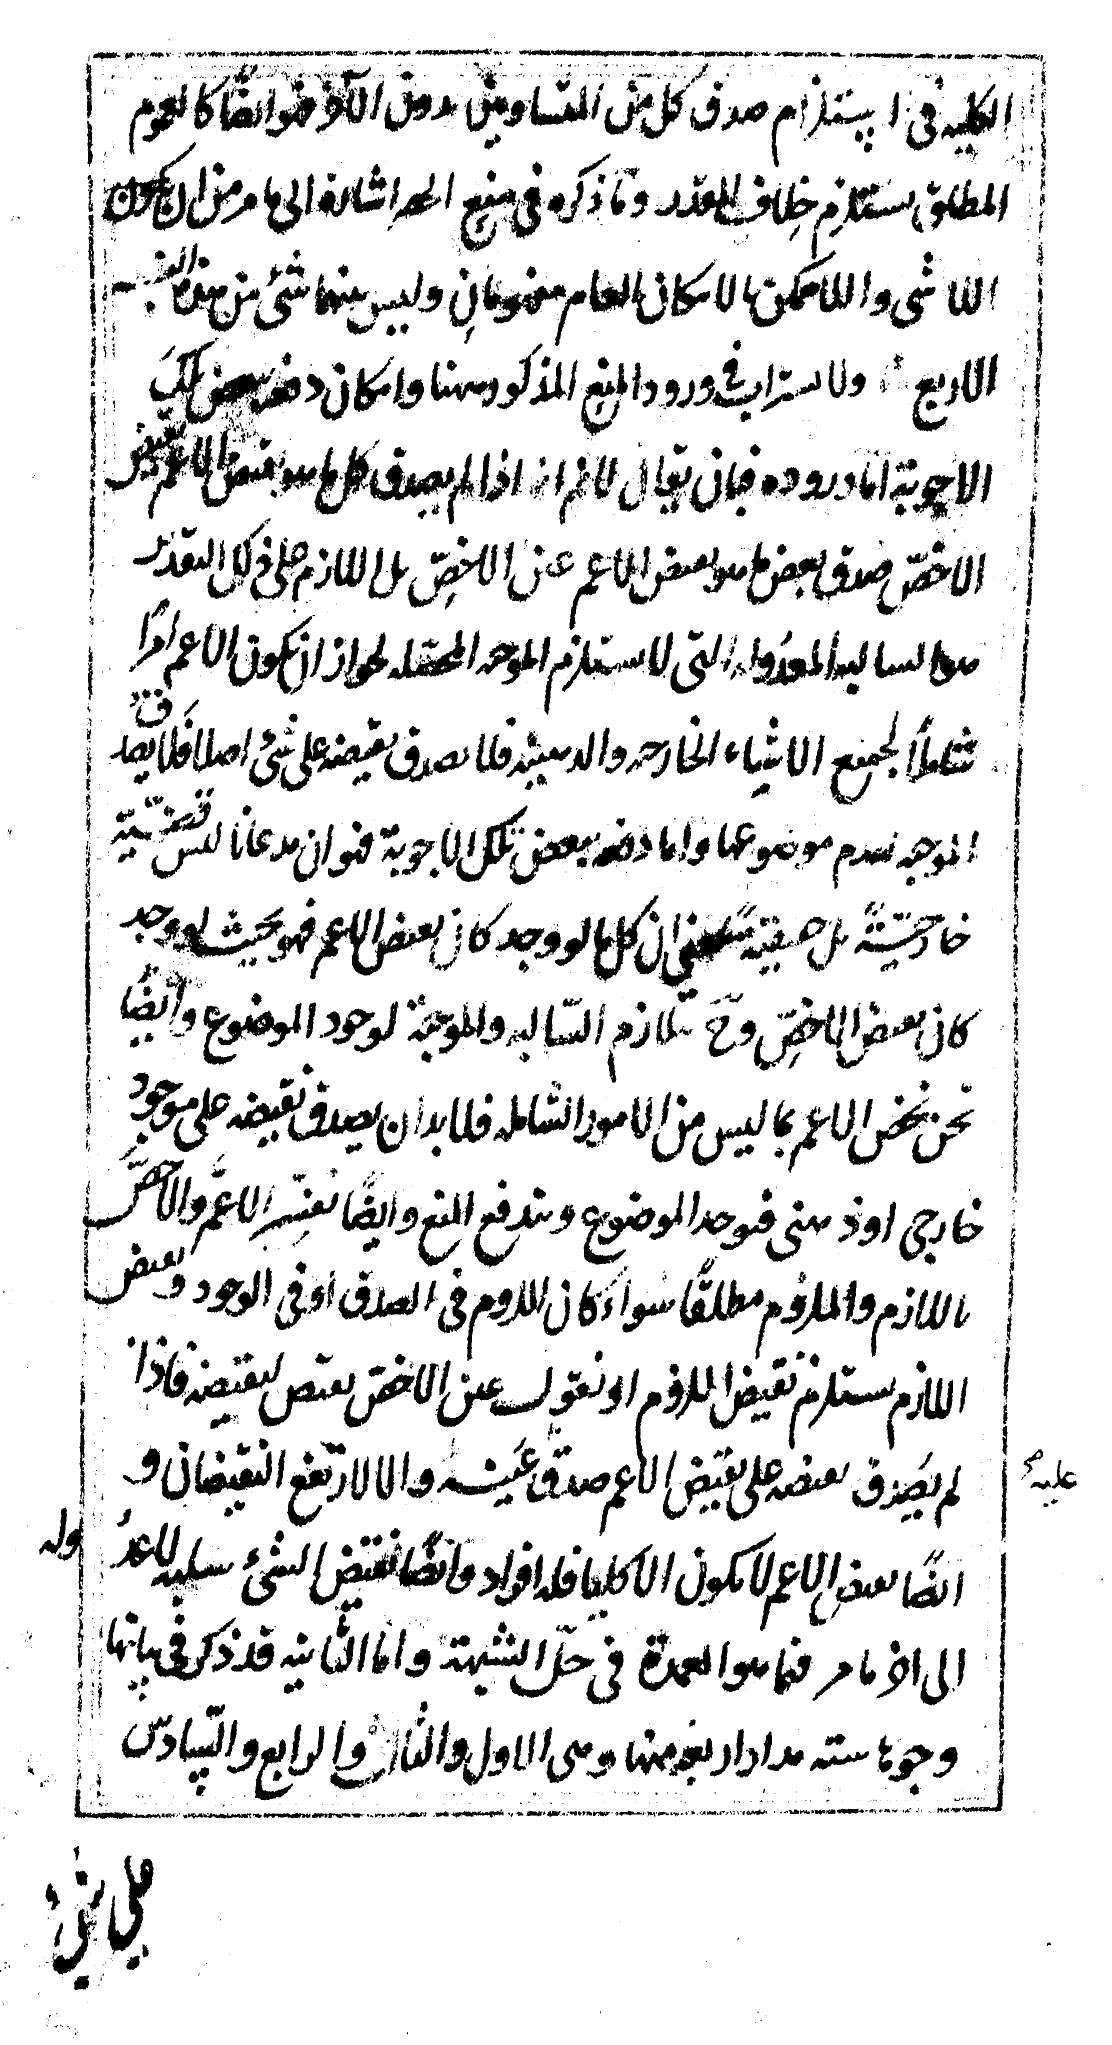 الكلية في استلزام صدق كل من المتساويين بدون الآخر فهو ايضًا كالعموم
المطلق يستلزم خلاف المقدر وما ذكره في منع الحصر اشارة الى ما مر من ان يكون
اللاشئ واللاممكن بالامكان العام مفهومان وليس بينهما شئ من هذه النسب
الاربع ولا يستراب في ورود المنع المذكور ههنا وامكان دفعه ببعض تلك
الاجوبة اما وروده فبان يقال لانم انه اذا لم يصدق كل ما هو نقيض الاعم نقيض
الاخص صدق بعض ما هو نقيض الاعم عين الاخص بل اللازم على ذلك التقدير
هو السالبة المعدولة التي لا يستلزم الموجبة المحصلة لجواز ان يكون الاعم امرًا
شاملًا لجميع الاشياء الخارجية والذهنية فلا يصدق نقيضه على شئ اصلا فلا يصدق
الموجبة لعدم موضوعها واما دفعه ببعض تلك الاجوبة فهو ان مدعانا ليس قضية
خارجيةً بل حقيقيةً معنى ان كل ما لو وجد كان نقيض الاعم فهو بحيث لو وجد
كان نقيض الاخص وح تلازم السالبة والموجبة لوجود الموضوع وايضًا
نحن نخص الاعم بما ليس من الامور الشاملة فلا بد ان يصدق نقيضه على موجود
خارجي او ذهني فيوجد الموضوع ويندفع المنع وايضًا نفسر الاعم والاخص
باللازم والملزوم مطلقًا سواء كان اللزوم في الصدق او في الوجود ونقيض
اللازم يستلزم نقيض الملزوم او نقول عين الاخص نقيض لنقيضه فاذا
لم يصدق نقيضه على نقيض الاعم صدق عينه والا لارتفع النقيضان و
عليه صح
ايضًا نقيض الاعم لا يكون الا كليا فله افراد وايضًا نقيض الشئ سلبه لا عدوله
الى اخر ما مر فما هو العمدة في حل الشبهة واما الثانية قد ذكر في بيانها
وجوها ستة مدار اربعة منها وهي الاول والثالث والرابع والسادس
على شئ